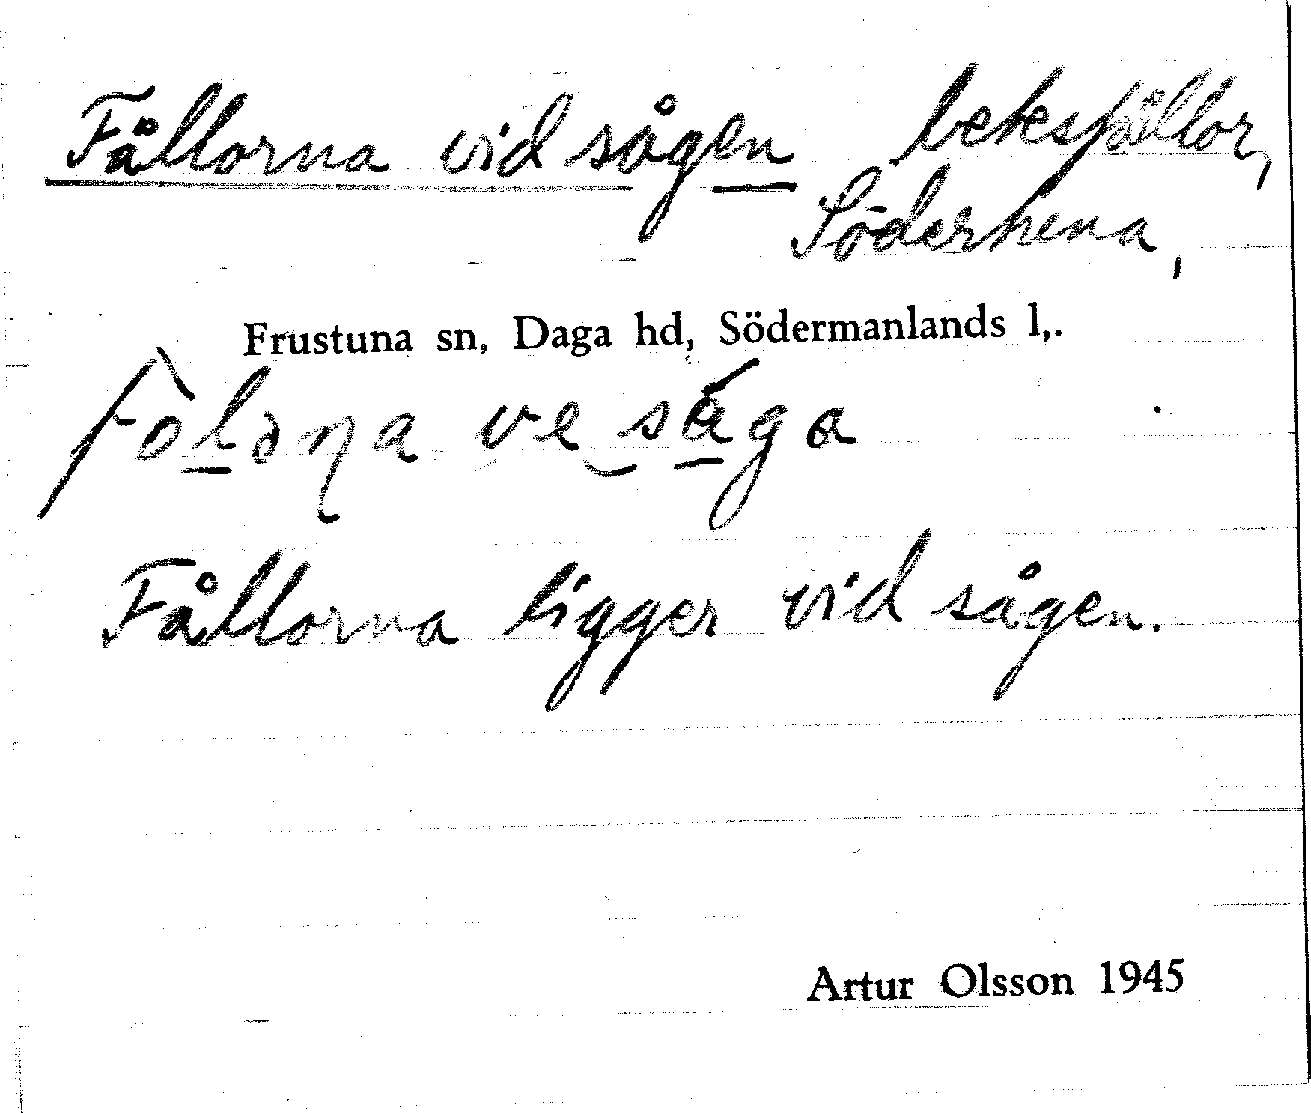 Fållorna vid sågen betesfållor,
Söderhena,
Frustuna sn, Daga hd, Södermanlands l,.
ve såga
Fållorna ligger vid sågen.
Artur Olsson 1945